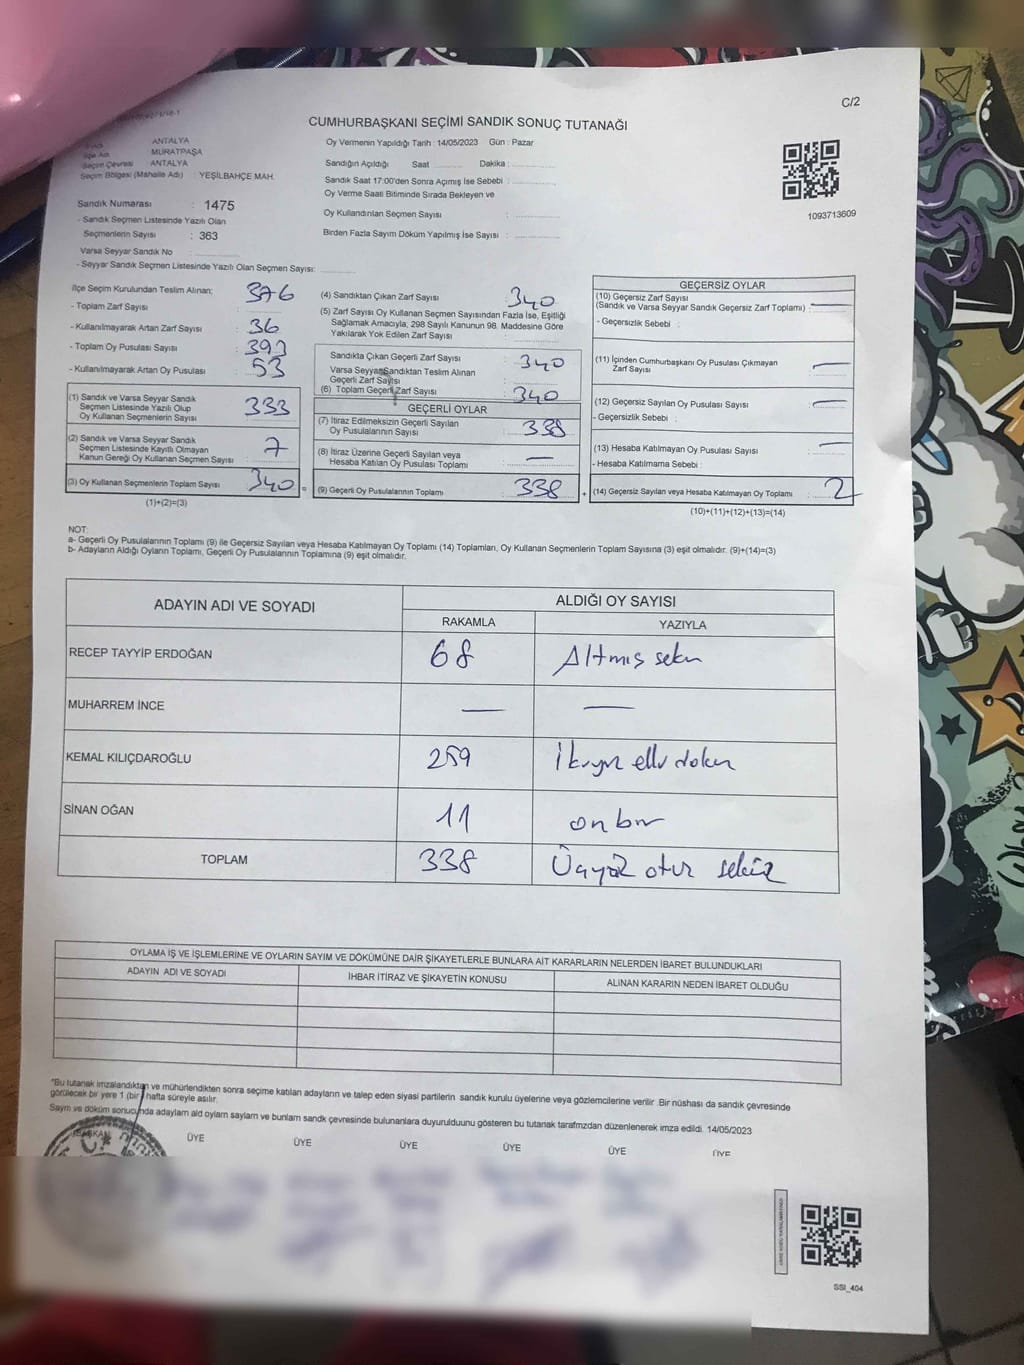 C/2
CUMHURBAŞKANI SEÇİMİ SANDIK SONUÇ TUTANAĞI
ANTALYA
İlçe Adı MURATPAŞA
Seçim Çevresi ANTALYA
Seçim Bölgesi (Mahalle Adı) : YEŞİLBAHÇE MAH.
Sandık Numarası : 1475
- Sandık Seçmen Listesinde Yazılı Olan
Seçmenlerin Sayısı : 363
Varsa Seyyar Sandık No :
- Seyyar Sandık Seçmen Listesinde Yazılı Olan Seçmen Sayısı:
Oy Vermenin Yapıldığı Tarih : 14/05/2023 Gün : Pazar
Sandığın Açıldığı Saat Dakika :
Sandık Saat 17:00'den Sonra Açımış İse Sebebi :
Oy Verme Saati Bitiminde Sırada Bekleyen ve
Oy Kullandırılan Seçmen Sayısı :
Birden Fazla Sayım Döküm Yapılmış İse Sayısı :
1093713609
İlçe Seçim Kurulundan Teslim Alınan;
- Toplam Zarf Sayısı : 376
- Kullanılmayarak Artan Zarf Sayısı : 36
- Toplam Oy Pusulası Sayısı : 393
- Kullanılmayarak Artan Oy Pusulası : 53
(1) Sandık ve Varsa Seyyar Sandık
Seçmen Listesinde Yazılı Olup
Oy Kullanan Seçmenlerin Sayısı : 333
(2) Sandık ve Varsa Seyyar Sandık
Seçmen Listesinde Kayıtlı Olmayan
Kanun Gereği Oy Kullanan Seçmen Sayısı : 7
(3) Oy Kullanan Seçmenlerin Toplam Sayısı : 340
(1)+(2)=(3)
(4) Sandıktan Çıkan Zarf Sayısı : 340
(5) Zarf Sayısı Oy Kullanan Seçmen Sayısından Fazla İse, Eşitliği
Sağlamak Amacıyla, 298 Sayılı Kanunun 98. Maddesine Göre
Yakılarak Yok Edilen Zarf Sayısı :
Sandıkta Çıkan Geçerli Zarf Sayısı : 340
Varsa Seyyar Sandıktan Teslim Alınan
Geçerli Zarf Sayısı :
(6) Toplam Geçerli Zarf Sayısı : 340
GEÇERLİ OYLAR
(7) İtiraz Edilmeksizin Geçerli Sayılan
Oy Pusulalarının Sayısı : 338
(8) İtiraz Üzerine Geçerli Sayılan veya
Hesaba Katılan Oy Pusulası Toplamı : —
= (9) Geçerli Oy Pusulalarının Toplamı : 338
GEÇERSİZ OYLAR
(10) Geçersiz Zarf Sayısı
(Sandık ve Varsa Seyyar Sandık Geçersiz Zarf Toplamı) : —
- Geçersizlik Sebebi :
(11) İçinden Cumhurbaşkanı Oy Pusulası Çıkmayan
Zarf Sayısı : —
(12) Geçersiz Sayılan Oy Pusulası Sayısı : —
- Geçersizlik Sebebi :
(13) Hesaba Katılmayan Oy Pusulası Sayısı : —
- Hesaba Katılmama Sebebi :
+ (14) Geçersiz Sayılan veya Hesaba Katılmayan Oy Toplamı : 2
(10)+(11)+(12)+(13)=(14)
NOT:
a- Geçerli Oy Pusulalarının Toplamı (9) ile Geçersiz Sayılan veya Hesaba Katılmayan Oy Toplamı (14) Toplamları, Oy Kullanan Seçmenlerin Toplam Sayısına (3) eşit olmalıdır. (9)+(14)=(3)
b- Adayların Aldığı Oyların Toplamı, Geçerli Oy Pusulalarının Toplamına (9) eşit olmalıdır.
ADAYIN ADI VE SOYADI ALDIĞI OY SAYISI
RAKAMLA YAZIYLA
RECEP TAYYİP ERDOĞAN 68 Altmış sekz
MUHARREM İNCE — —
KEMAL KILIÇDAROĞLU 259 İkiyüz elli dokuz
SİNAN OĞAN 11 onbir
TOPLAM 338 Üçyüz otuz sekiz
OYLAMA İŞ VE İŞLEMLERİNE VE OYLARIN SAYIM VE DÖKÜMÜNE DAİR ŞİKAYETLERLE BUNLARA AİT KARARLARIN NELERDEN İBARET BULUNDUKLARI
ADAYIN ADI VE SOYADI İHBAR İTİRAZ VE ŞİKAYETİN KONUSU ALINAN KARARIN NEDEN İBARET OLDUĞU
*Bu tutanak imzalandıktan ve mühürlendikten sonra seçime katılan adayların ve talep eden siyasi partilerin sandık kurulu üyelerine veya gözlemcilerine verilir .Bir nüshası da sandık çevresinde
görülecek bir yere 1 (bir) hafta süreyle asılır.
Sayım ve döküm sonucunda adayların aldı oyların sayıların ve bunların sandk çevresinde bulunanlara duyurulduunu gösteren bu tutanak tarafmzdan düzenlenerek imza edildi. 14/05/2023
BAŞKAN ÜYE ÜYE ÜYE ÜYE ÜYE ÜYE
SSI_404